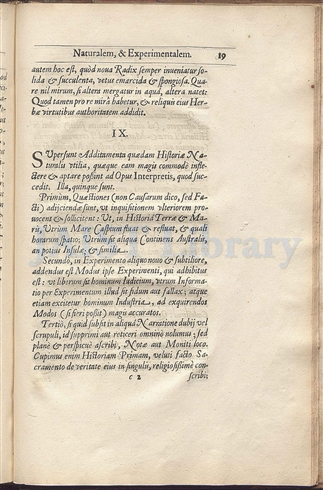 Naturalem, & Experimentalem. 19
autem hoc est, quòd nova Radix semper inveniatur so-
lida & succulenta, vetus emarcida & spongiosa. Qua-
re nil mirum, si altera mergatur in aquâ, altera natet:
Quod tamen pro re mirâ habetur, & reliquis eius Her-
bæ virtutibus authoritatem addidit.
IX.
SUpersunt Additamenta quædam Historiæ Na-
turalis vtilia, quæque eam magis commodè infle-
ctere & aptare possint ad Opus Interpretis, quod suc-
cedit. Illa, quinque sunt.
Primùm, Quæstiones (non Causarum dico, sed Fa-
cti) adijciendæ sunt, vt inquisitionem vlteriorem pro-
vocent & sollicitent: Vt, in Historiâ Terræ & Ma-
ris, Vtrùm Mare Caspium fluat & refluat, & quali
horarum spatio; Vtrùm sit aliqua Continens Australis,
an potiùs Insula; & similia.
Secundò, in Experimento aliquo nouo & subtiliore,
addendus est Modus ipse Experimenti, qui adhibitus
est: vt liberum sit hominum Iudicium, vtrùm Informa-
tio per Experimentum illud sit fida aut fallax; atque
etiam excitetur hominum Industria, ad exquirendos
Modos (si fieri possit) magis accuratos.
Tertiò, si quid subsit in aliquâ Narratione dubij vel
scrupuli, id supprimi aut reticeri omninò nolumus; sed
planè & perspicuè ascribi, Notæ aut Moniti loco.
Cupimus enim Historiam Primam, veluti facto Sa-
cramento de veritate eius in singulis, religiosissimè con-
c 2 scribi;
Library